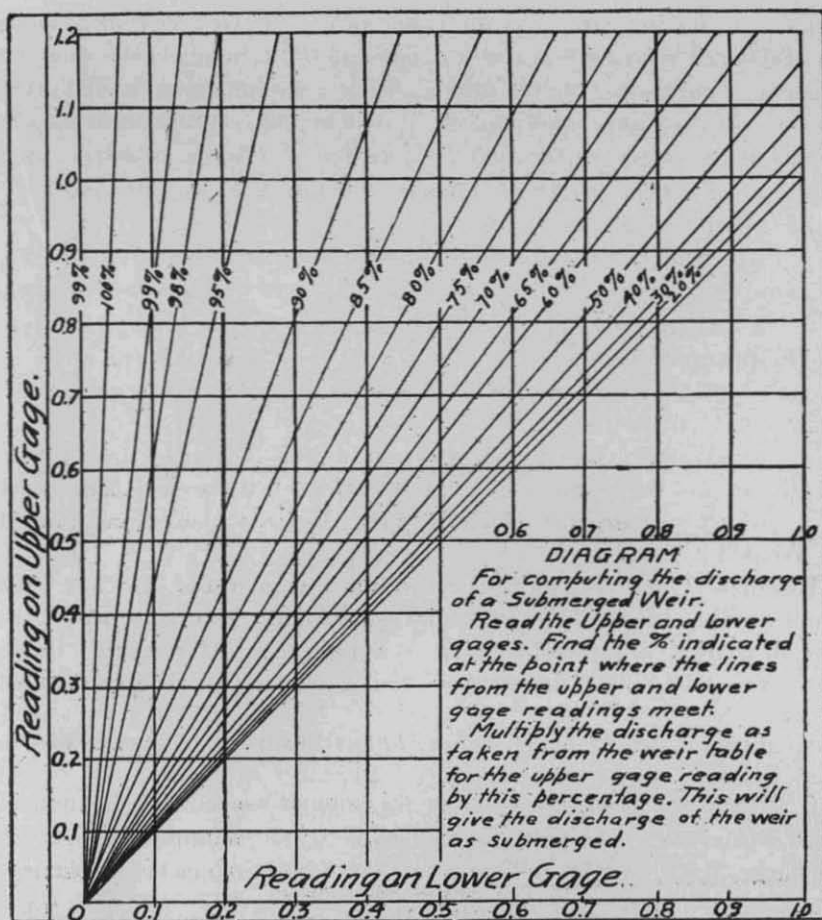 1.2
1.1
1.0
0.9
99%
100%
99%
98%
95%
90%
85%
80%
75%
70%
65%
60%
50%
40%
30%
20%
0.8
0.7
0.6
0.5
0.4
0.3
0.2
0.1
Reading on Upper Gage.
0.6 0.7 0.8 0.9 1.0
DIAGRAM
For computing the discharge
of a Submerged Weir.
Read the Upper and Lower
gages. Find the % indicated
at the point where the lines
from the upper and lower
gage readings meet.
Multiply the discharge as
taken from the weir table
for the upper gage reading
by this percentage. This will
give the discharge of the weir
as submerged.
Reading on Lower Gage.
0 0.1 0.2 0.3 0.4 0.5 0.6 0.7 0.8 0.9 1.0